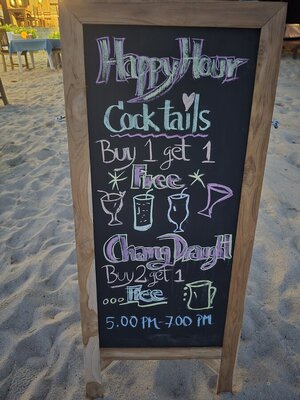 Happy Hour
Cocktails
Buy 1 get 1
Free
Chang Draught
Buy 2 get 1
... Free
5.00 PM-7.00 PM